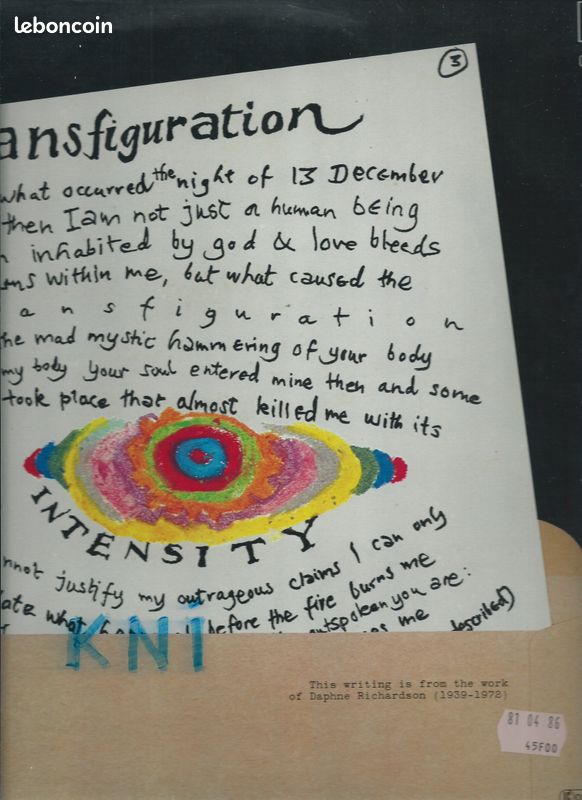 leboncoin
3
ansfiguration
what occurred the night of 13 December
then I am not just a human being
inhabited by god & love bleeds
ms within me, but what caused the
a n s f i g u r a t i o n
he mad mystic hammering of your body
my body your soul entered mine then and some
took place that almost killed me with its
INTENSITY
nnot justify my outrageous claims I can only
ate what before the fire burns me
outspoken you are:
me described)
KNi
This writing is from the work
of Daphne Richardson (1939-1972)
81 04 86
45F00